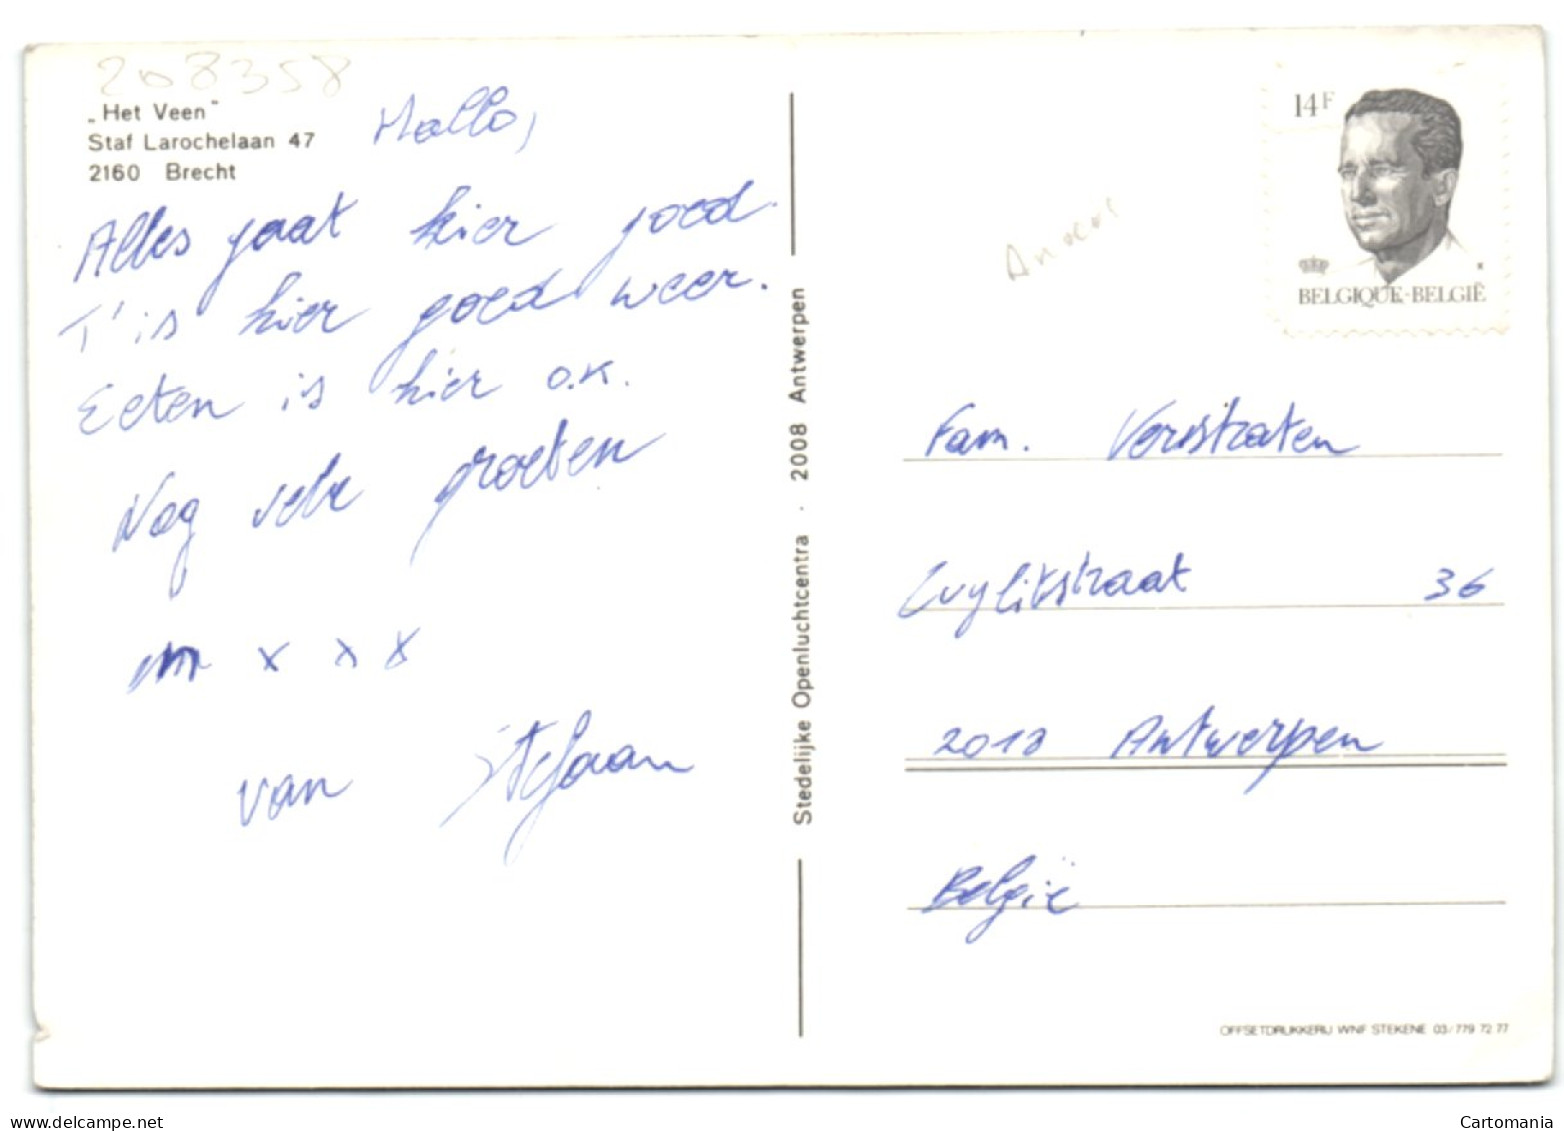 208358
„Het Veen"
Staf Larochelaan 47
2160 Brecht
Hallo,
Alles gaat hier goed.
T'is hier goed weer.
Eeten is hier o.k.
Nog vele groeten
en x x x
van Stefaan
Stedelijke Openluchtcentra . 2008 Antwerpen
14F
BELGIQUE-BELGIË
Fam. Verstraten
36
2018 Antwerpen
België
OFFSETDRUKKERIJ WNF STEKENE 03/779 72 77
www.delcampe.net
Cartomania